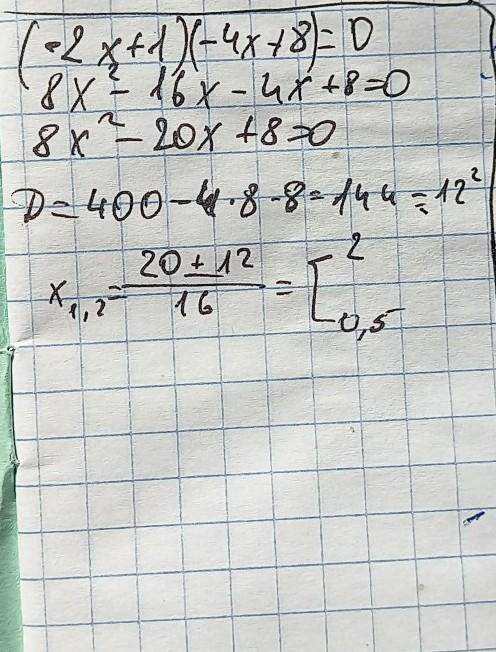 (-2x+1)(-4x+8)=0
8x²-16x-4x+8=0
8x²-20x+8=0
D=400-4·8·8=144=12²
x₁,₂=(20±12)/16=[2
0,5